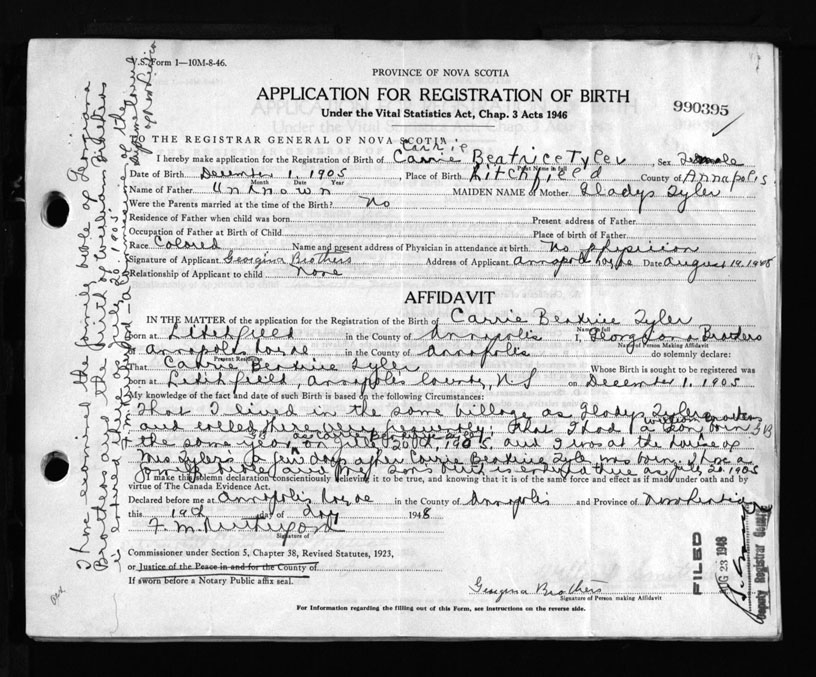 V.S. Form 1—10M-8-46.
PROVINCE OF NOVA SCOTIA
APPLICATION FOR REGISTRATION OF BIRTH
Under the Vital Statistics Act, Chap. 3 Acts 1946
990395
TO THE REGISTRAR GENERAL OF NOVA SCOTIA
Carrie
I hereby make application for the Registration of Birth of Carrie Beatrice Tyler, Sex Female
Print Name in full
Date of Birth December 1, 1905, Place of Birth Litchfield County of Annapolis
Month Date Year
Name of Father Unknown MAIDEN NAME of Mother Gladys Tyler
Were the Parents married at the time of the Birth? No
Residence of Father when child was born Present address of Father
Occupation of Father at Birth of Child Place of birth of Father
Race Colored Name and present address of Physician in attendance at birth No physician
Signature of Applicant Georgina Brothers Address of Applicant Annapolis Date August 19, 1948
Relationship of Applicant to child None
AFFIDAVIT
IN THE MATTER of the application for the Registration of Birth of Carrie Beatrice Tyler
Name in full
born at Litchfield in the County of Annapolis I, Brothers
Name of Person Making Affidavit
of Annapolis in the County of Annapolis do solemnly declare:
Present Residence
That Carrie Beatrice Tyler Whose Birth is sought to be registered was
born at Litchfield, Annapolis County, N S on December 1, 1905
My knowledge of the fact and date of such Birth is based on the following Circumstances:
That I lived in the same village as Gladys Tyler
and called there very frequently. That I had a son, William Brothers born
the same year, on July 20th 1905. and I was at the house of
Mrs Tylers a few days after Carrie Beatrice Tyler was born. I have a
family bible and my sons birth is entered there as July 20, 1905
I make this solemn declaration conscientiously believing it to be true, and knowing that it is of the same force and effect as if made under oath and by
virtue of The Canada Evidence Act.
Declared before me at Annapolis in the County of Annapolis and Province of Nova Scotia
this 19th day of 1948
Signature of
Commissioner under Section 5, Chapter 38, Revised Statutes, 1923,
or Justice of the Peace in and for the County of
If sworn before a Notary Public affix seal.
Georgina Brothers
Signature of Person making Affidavit
For Information regarding the filling out of this Form, see instructions on the reverse side.
FILED
AUG 23 1948
Deputy Registrar General
I have examined the family bible of Georgina
Brothers and the birth of William Brothers
is entered there as July 20, 1905